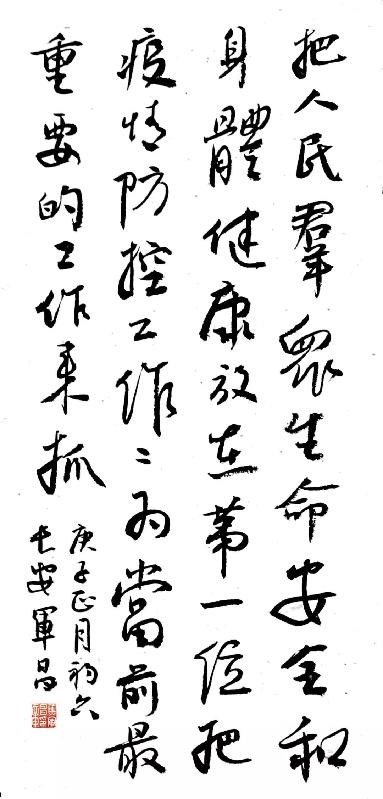 把人民羣眾生命安全和
身體健康放在第一位把
疫情防控工作〻為當前最
重要的工作来抓
庚子正月初六
長安軍昌